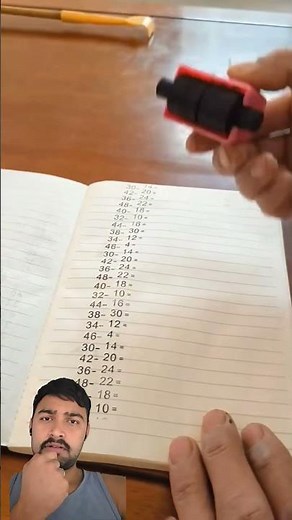 30- 14=
42- 20=
36- 24=
48- 22=
40- 18=
32- 10=
44- 16=
38- 30=
34- 12=
46- 4=
30- 14=
42- 20=
36- 24=
48- 22=
40- 18=
32- 10=
44- 16=
38- 30=
34- 12=
46- 4=
30- 14=
42- 20=
36- 24=
48- 22=
- 18=
10=